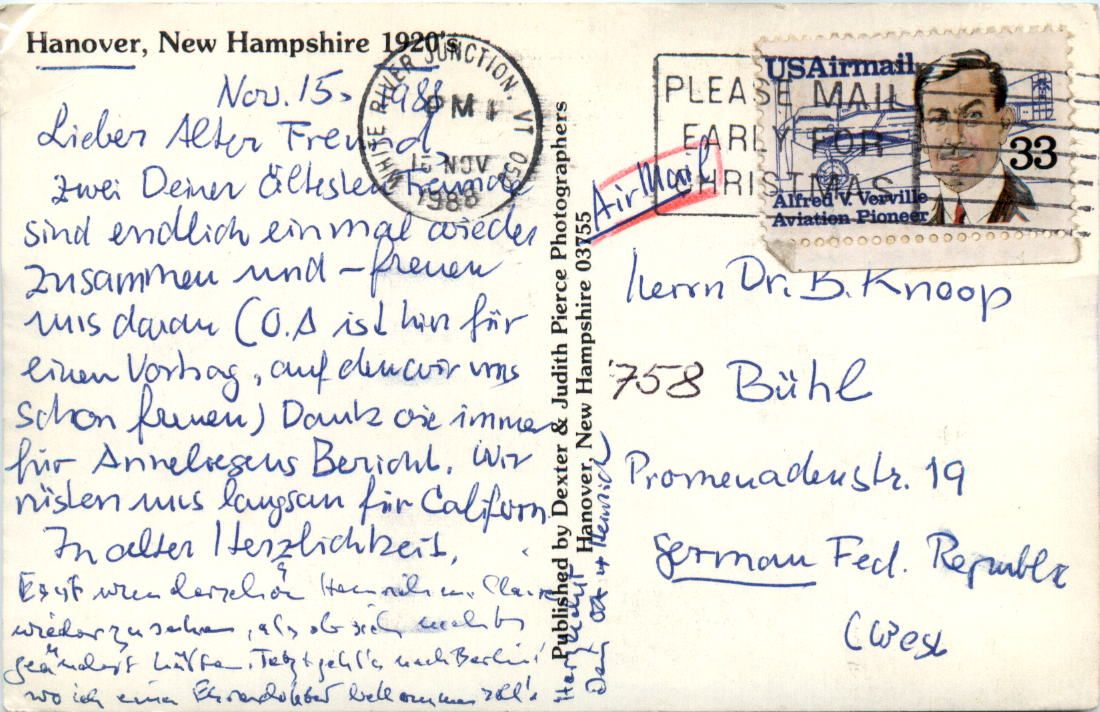 Hanover, New Hampshire 1920's
Nov. 15. 1988
Lieber Alter Freund,
zwei Deiner ältesten Freunde
sind endlich einmal wieder
zusammen und – freuen
uns daran (O.A ist hier für
einen Vortrag, auf den wir uns
schon freuen) Dank wie immer
für Anneliesens Bericht. Wir
rüsten uns langsam für Californ
In alter Herzlichkeit,
Es ist wunderschön Heinrich u.
wieder zu sehen, als ob sich nichts
geändert hätte. Jetzt geht's nach Berlin,
wo ich einen Ehrendoktor bekommen soll!
Herzlichst
Dein
Heinrich
Published by Dexter & Judith Pierce Photographers
Hanover, New Hampshire 03755
WHITE RIVER JUNCTION, VT 050
PM
15 NOV
1988
PLEASE MAIL
EARLY FOR
CHRISTMAS
USAirmail
33
Alfred V. Verville
Aviation Pioneer
Air Mail
Herrn Dr. B. Knoop
758 Bühl
Promenadenstr. 19
German Fed. Republic
(West